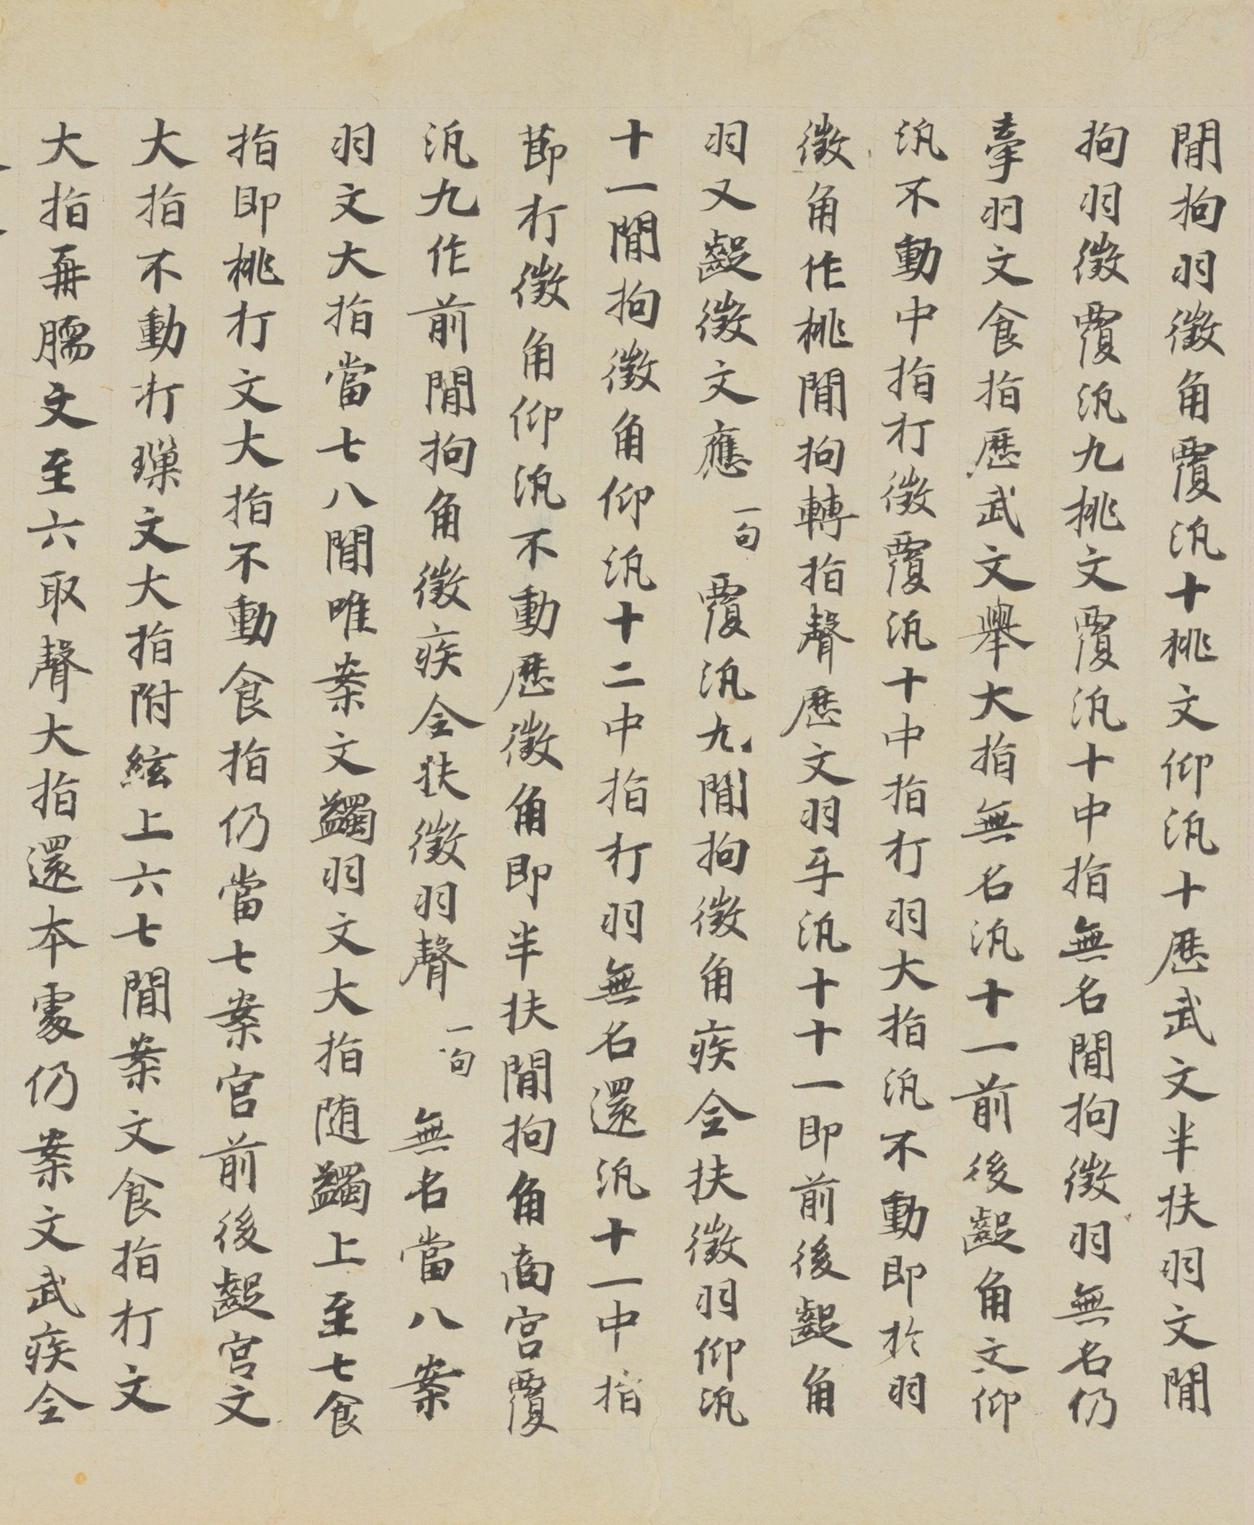 閒拘羽徵角覆汎十桃文仰汎十歷武文半扶羽文閒
拘羽徵覆汎九桃文覆汎十中指無名閒拘徵羽無名仍
牽羽文食指歷武文舉大指無名汎十一前後齪角文仰
汎不動中指打徵覆汎十中指打羽大指汎不動即於羽
徵角作桃閒拘轉指聲歷文羽牙汎十十一即前後齪角
羽又齪徵文應一句覆汎九閒拘徵角疾全扶徵羽仰汎
十一閒拘徵角仰汎十二中指打羽無名還汎十一中指
節打徵角仰汎不動歷徵角即半扶閒拘角商宮覆
汎九作前閒拘角徵疾全扶徵羽聲一句無名當八案
羽文大指當七八閒唯案文蠲羽文大指随蠲上至七食
指即桃打文大指不動食指仍當七案宮前後齪宮文
大指不動打璅文大指附絃上六七閒案文食指打文
大指再臑文至六取聲大指還本處仍案文武疾全